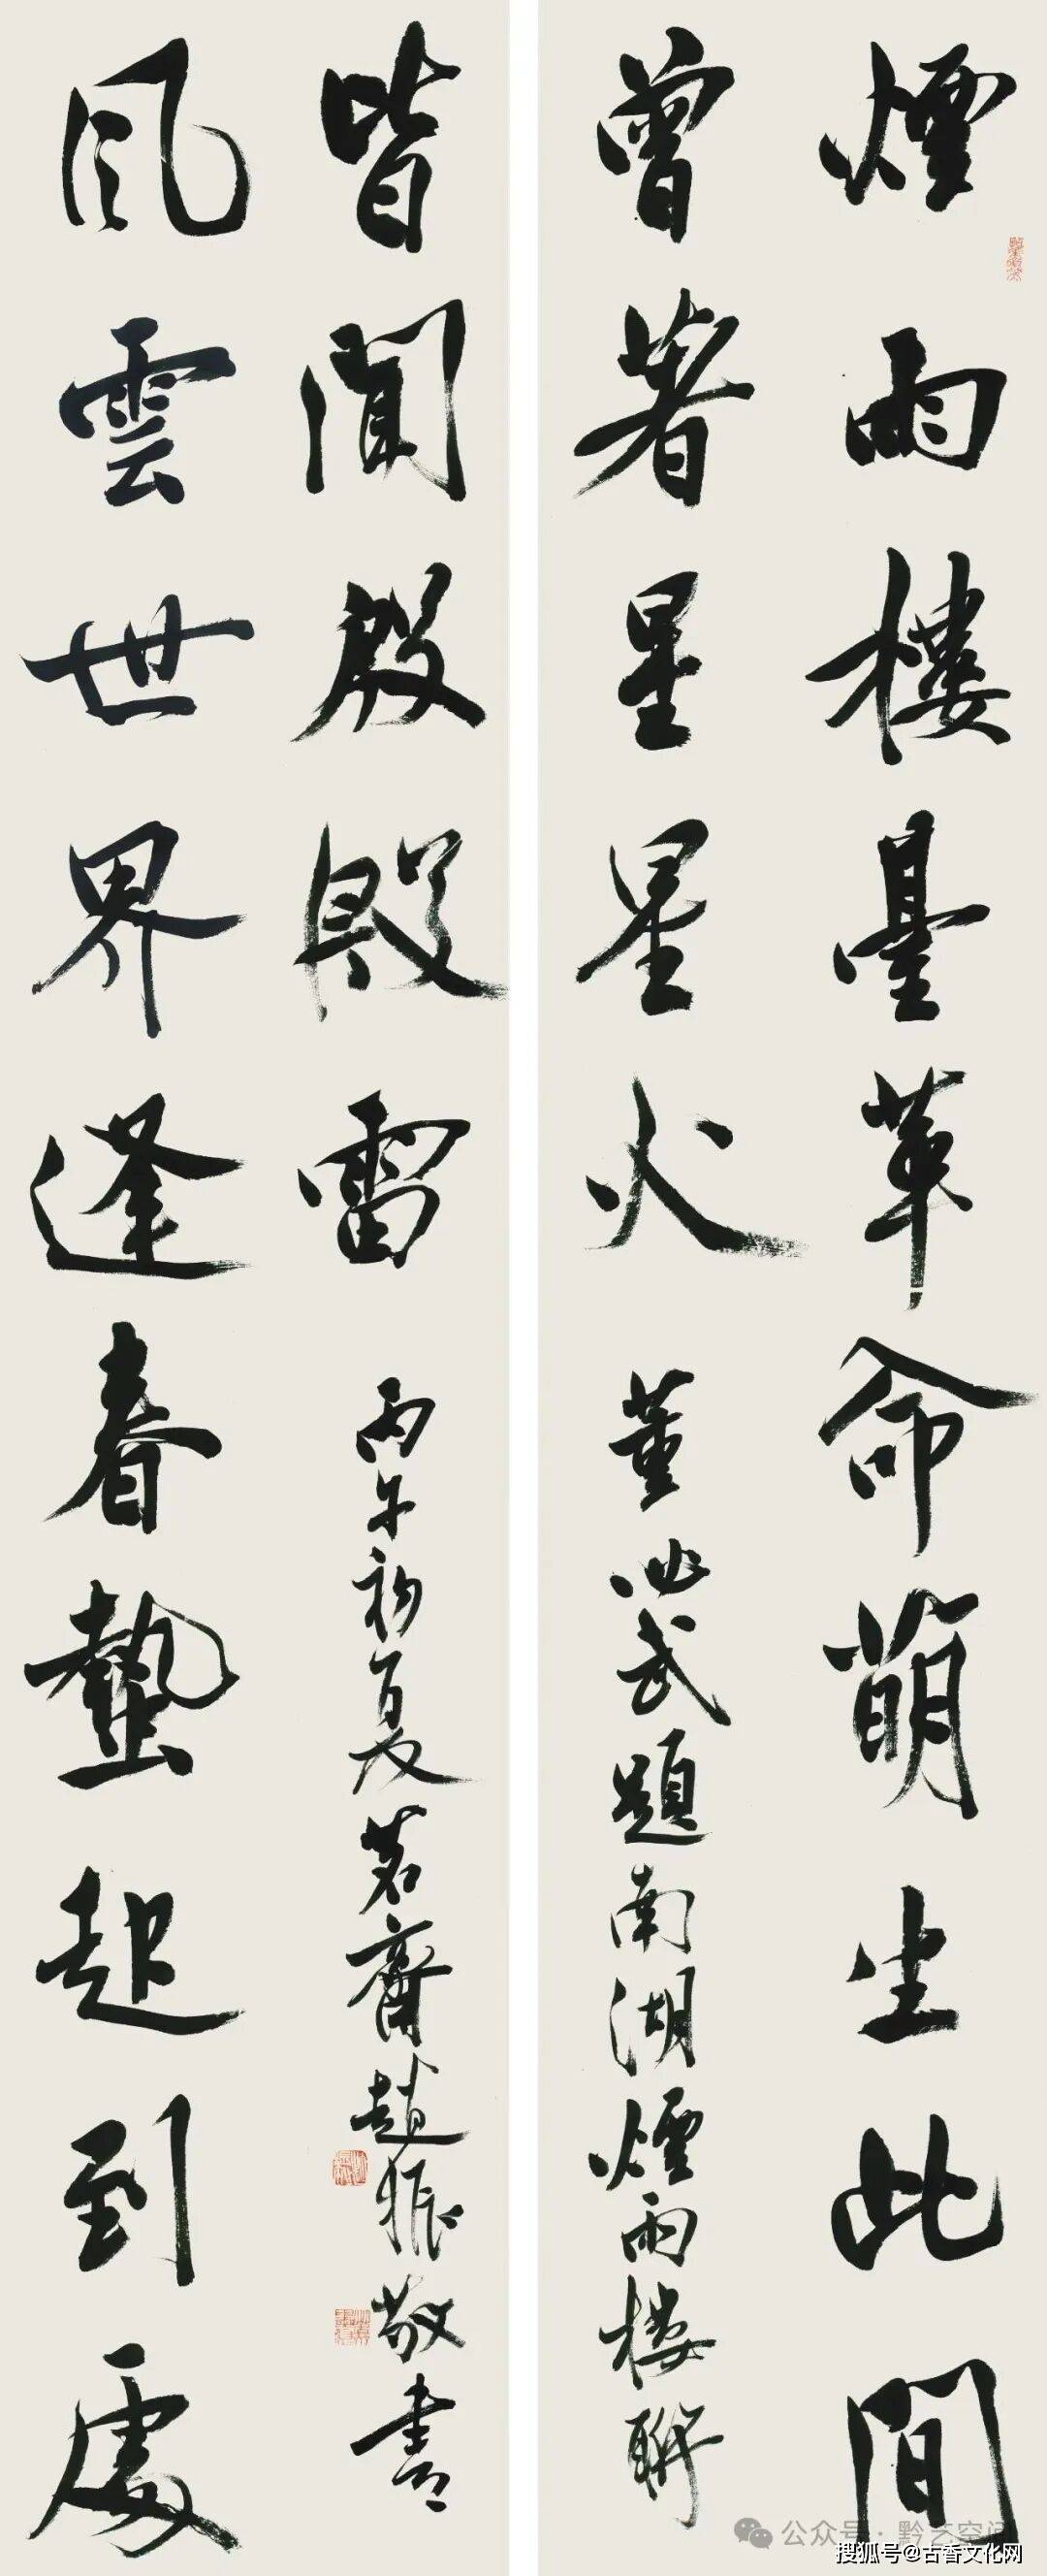 煙雨樓臺革命萌生此間
曾著星星火
董必武題南湖煙雨樓聯
風雲世界逢春蟄起到處
皆聞殷殷雷
丙午初夏茗齋趙振敬書
公众号·黔艺空间
搜狐号@古香文化网